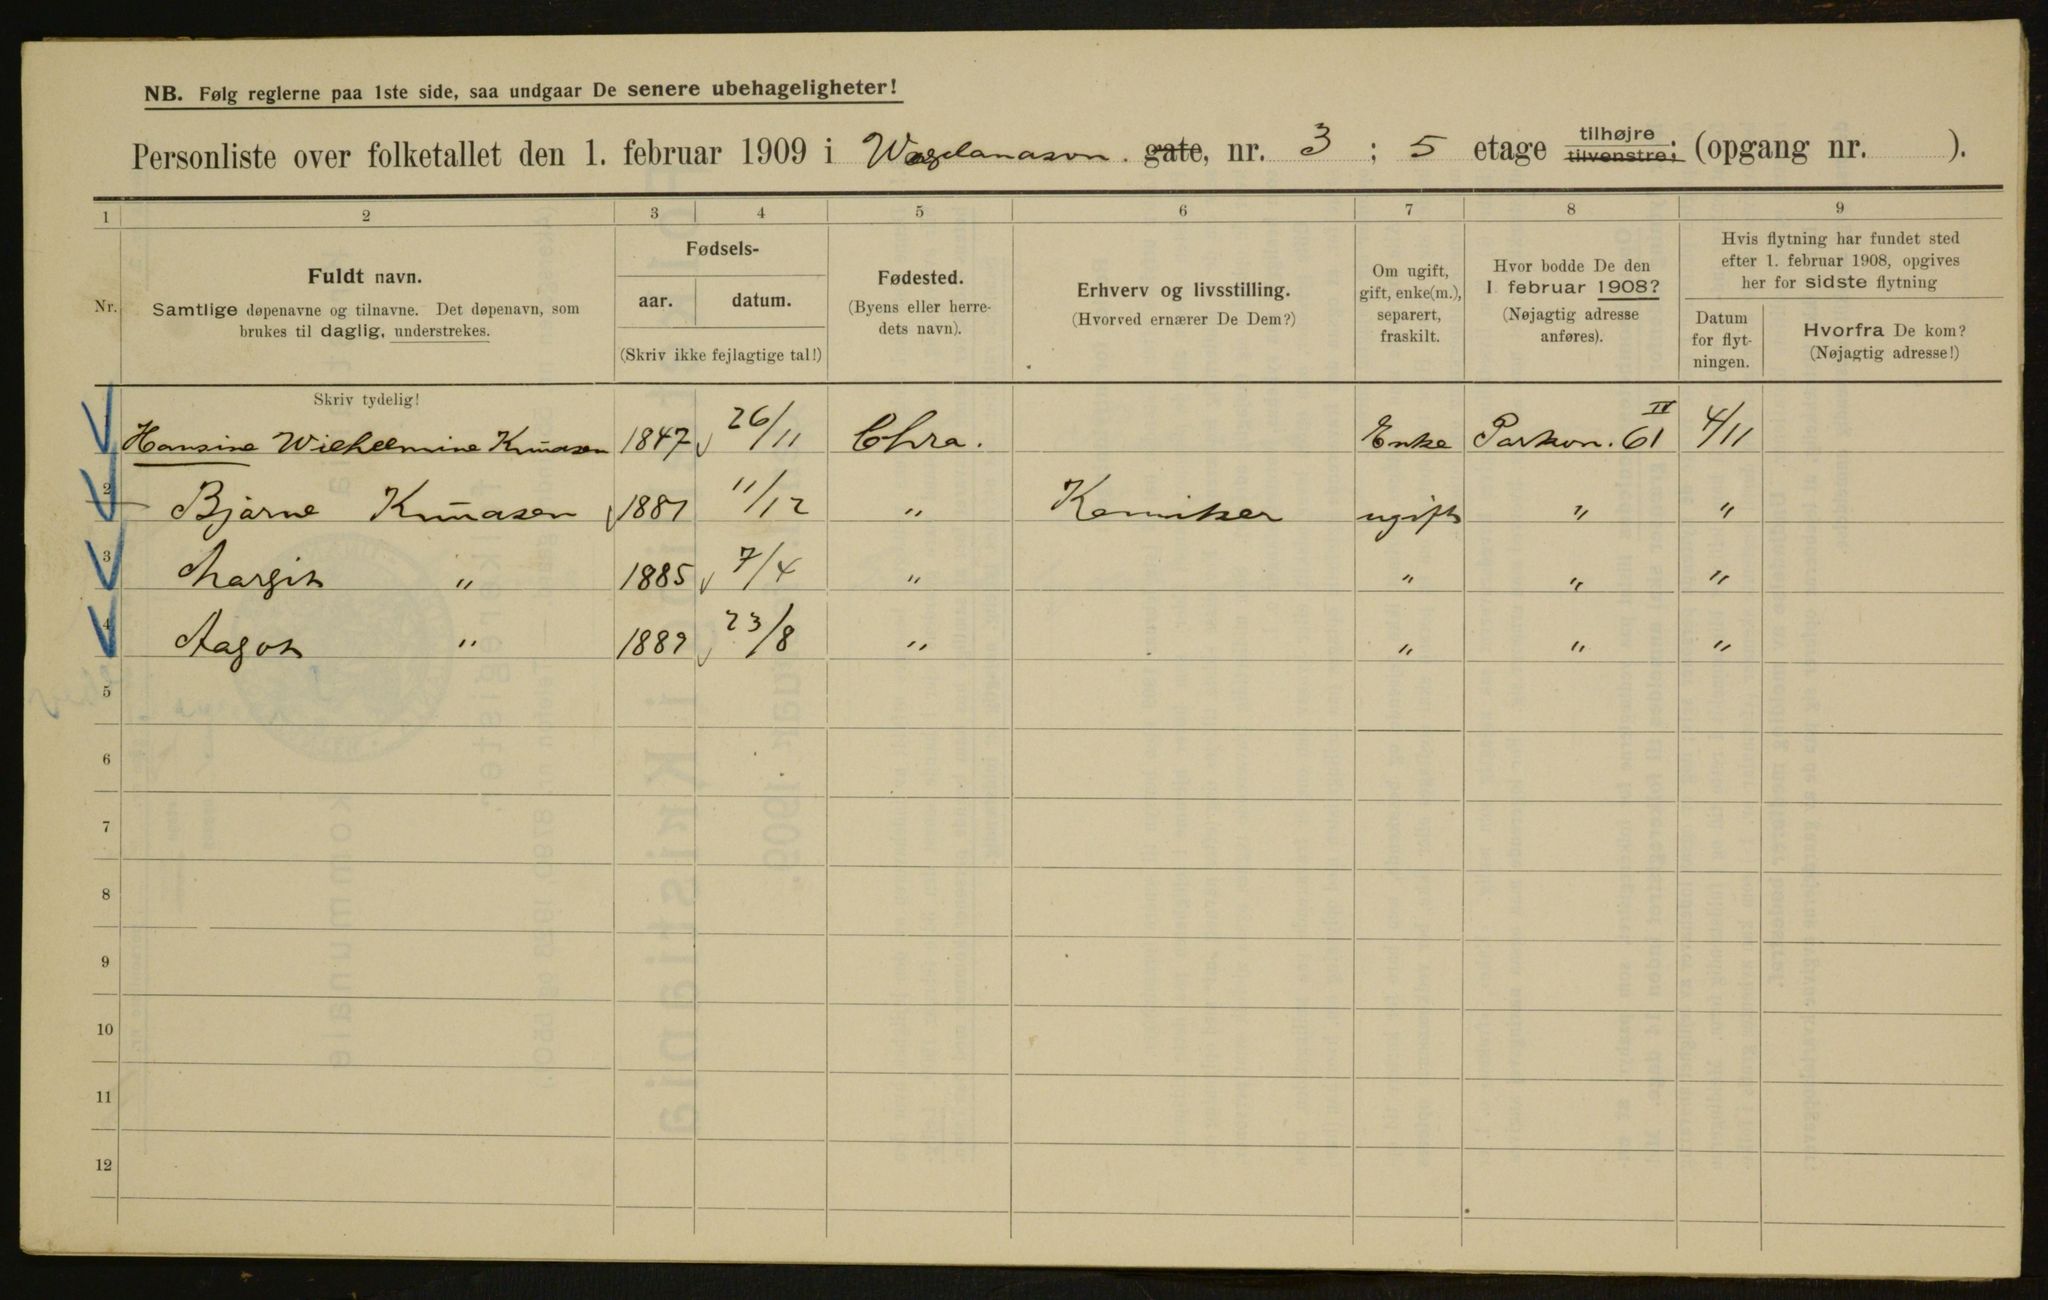 NB. Følg reglerne paa 1ste side, saa undgaar De senere ubehageligheter!
Personliste over folketallet den 1. februar 1909 i gate, nr. 3 ; 5 etage tilhøjre tilvenstre; (opgang nr. ).
1 2 3 4 5 6 7 8 9
Nr.
Fuldt navn.
Samtlige døpenavne og tilnavne. Det døpenavn, som
brukes til daglig, understrekes.
Fødsels-
aar. datum.
(Skriv ikke fejlagtige tal!)
Fødested.
(Byens eller herre-
dets navn).
Erhverv og livsstilling.
(Hvorved ernærer De Dem?)
Om ugift,
gift, enke(m.),
separert,
fraskilt.
Hvor bodde De den
1 februar 1908?
(Nøjagtig adresse
anføres).
Hvis flytning har fundet sted
efter 1. februar 1908, opgives
her for sidste flytning
Datum
for flyt-
ningen.
Hvorfra De kom?
(Nøjagtig adresse!)
Skriv tydelig!
1 Hansine Wilhelmine Knudsen 1847 26/11 Chra. Enke Parkvn. 61 IV 4/11
2 Bjarne Knudsen 1881 11/12 " Kemiker ugift " "
3 Margit " 1885 7/4 " " " "
4 Aagot " 1889 23/8 " " " "
5
6
7
8
9
10
11
12